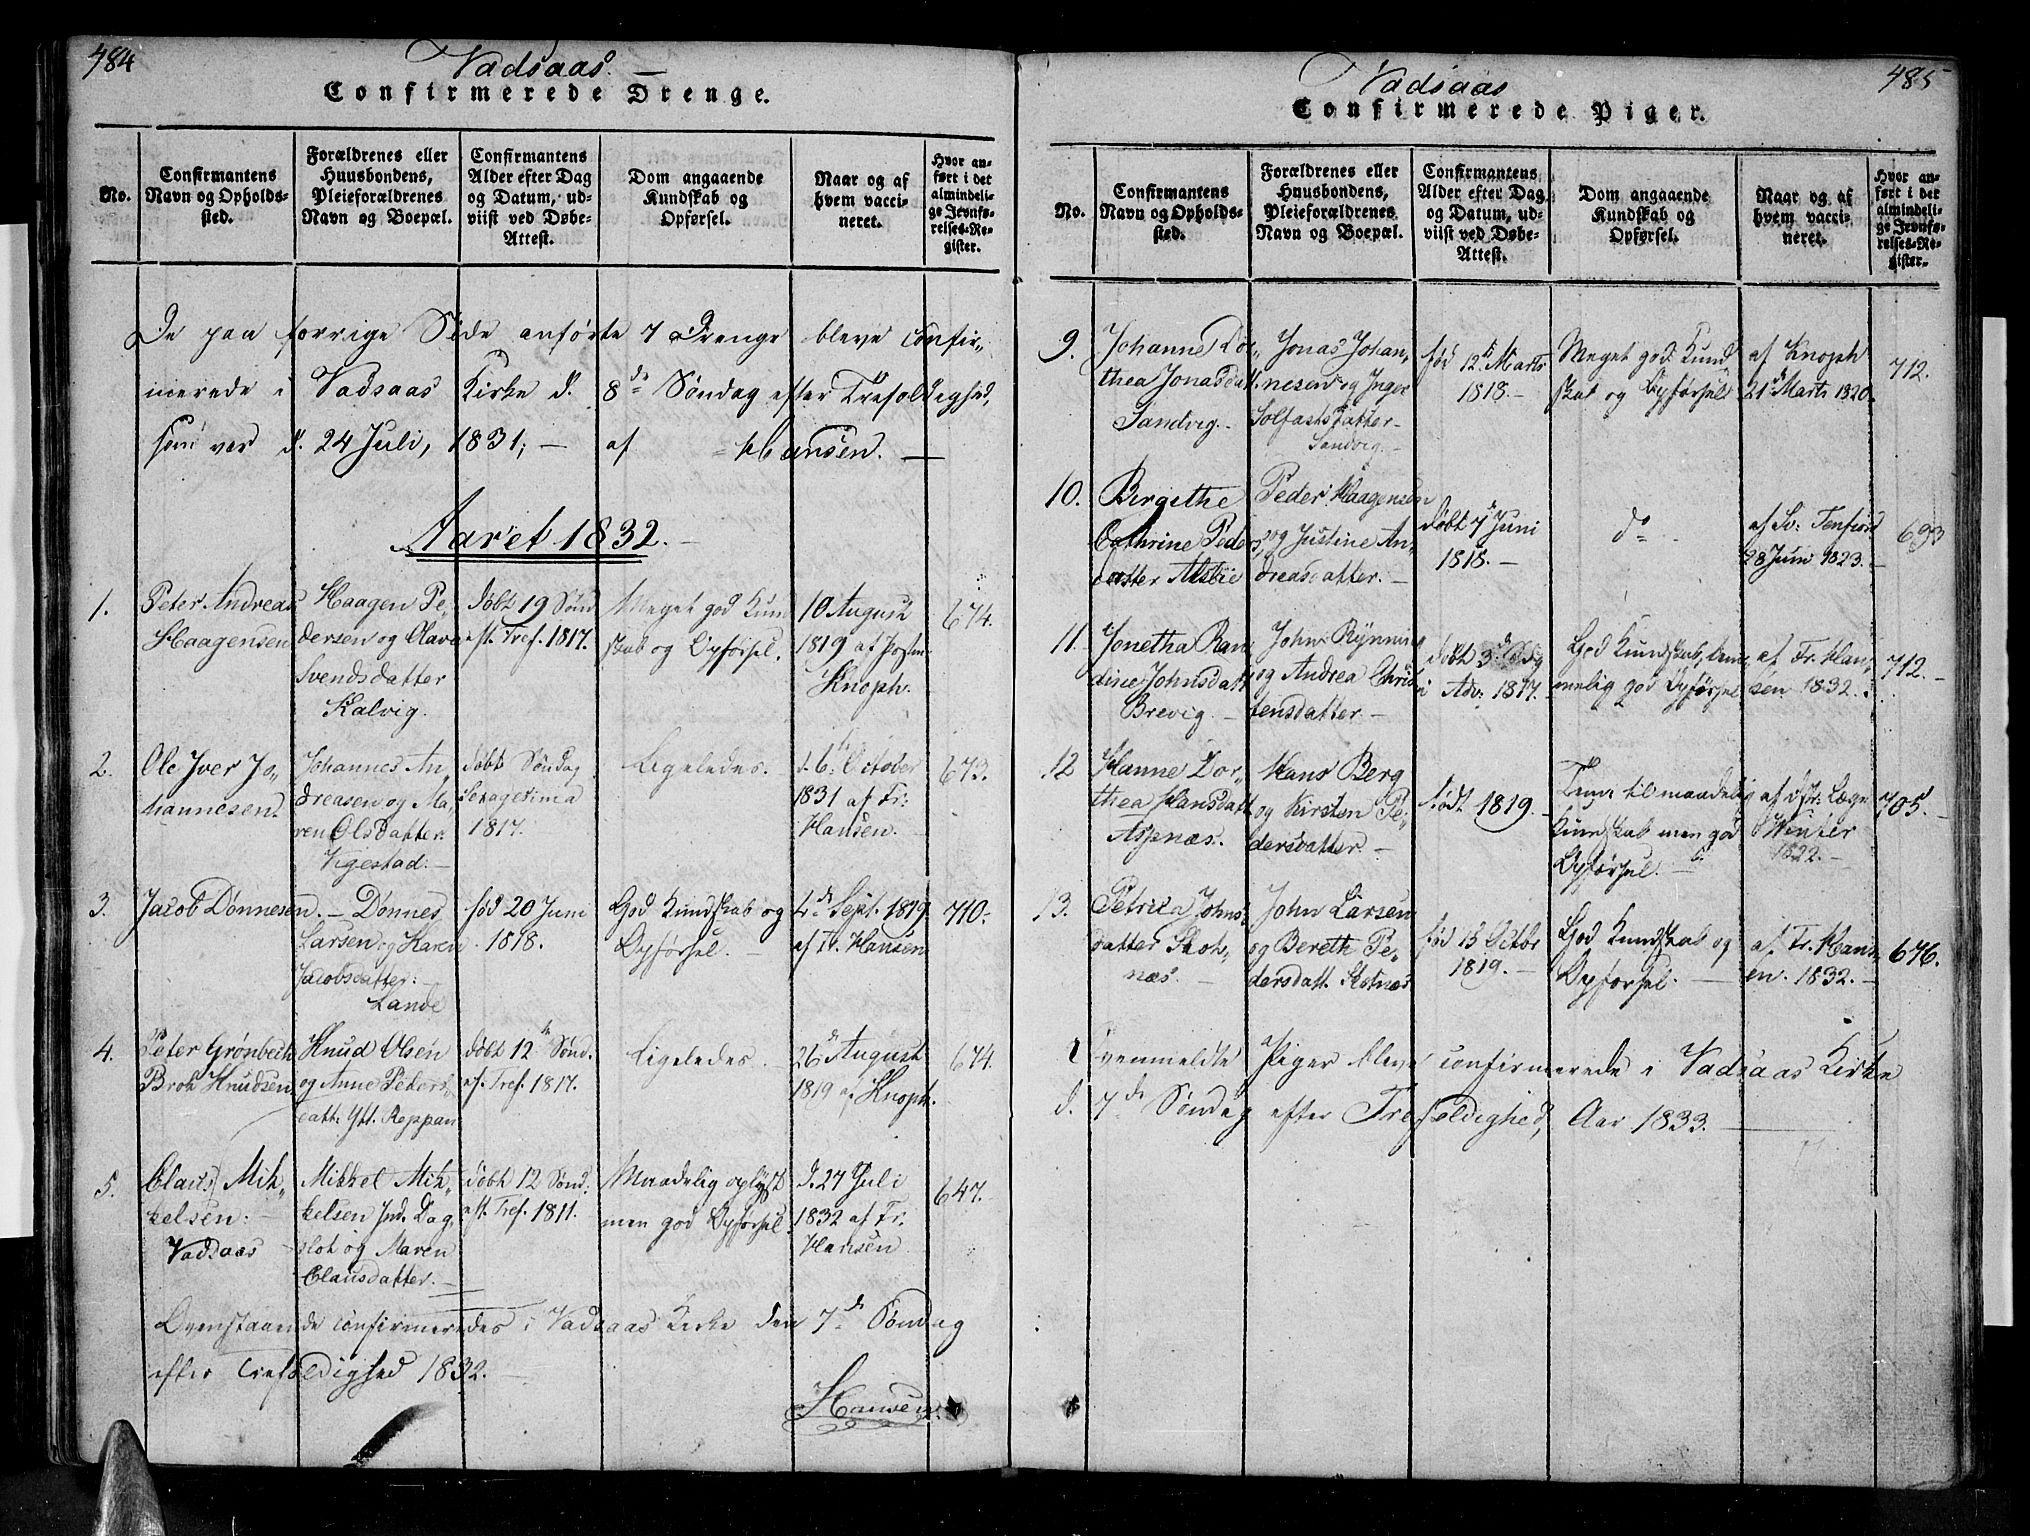 484
Vadsaas.
Confirmerede Drenge.
No.
Confirmantens
Navn og Opholds-
sted.
Forældrenes eller
Huusbondens,
Pleieforældrenes
Navn og Boepæl.
Confirmantens
Alder efter Dag
og Datum, ud-
viist ved Døbe-
Attest.
Dom angaaende
Kundskab og
Opførsel.
Naar og af
hvem vacci-
neret.
Hvor an-
ført i det
almindeli-
ge Jevnfø-
relses-Re-
gister.
De paa forrige Side anførte 7 Drenge bleve confir-
merede i Vadsaas Kirke d. 8de Søndag efter Trefoldighed,
som var d. 24 Juli, 1831; - af Hansen. -
Aaret 1832.
1.
Peter Andreas
Haagensen
Haagen Pe-
dersen og Olava
Svendsdatter
Kalvig.
døbt 19 Sønd
eft. Tref. 1817.
Meget god Kun
skab og Opførsel.
10 August
1819 af
Knoph.
674.
2.
Ole Iver Jo-
hannesen.
Johannes An-
dreasen og Ma-
ren Olsdatter.
Vigestad. -
døbt Søndag
Sexagesima
1817.
Ligeledes. -
d. 6te October
1831 af Fr:
Hansen. -
673.
3.
Jacob Dønnesen. -
Dønnes
Larsen og Karen
Jacobsdatter:
Lande
fød 20 Juni
1818.
God Kundskab og
Opførsel. -
4de Sept. 1819
af Fr. Hansen
710.
4.
Peter Grønbech
Broh Knudsen
Knud Olsen
og Anne Peders-
datt: Ytt. Reppan
døbt 12te Sønd.
ef. Tref. 1817.
Ligeledes. -
26de August
1819 af Knoph.
674.
5.
Claus Mik-
kelsen:
Vadsaas
Mikkel Mik-
kelsen Ind. Dag-
slot og Maren
Clausdatter. -
døbt 12 Sønd.
eft. Tref. 1811.
Maadelig oplyst
men god Opførsel.
d. 27 Juli
1832 af Fr.
Hansen
647.
Ovenstaaende confirmeredes i Vadsaas Kirke den 7de Søndag
efter Trefoldighed 1832. -
Hansen.
485
Vadsaas
Confirmerede Piger.
No.
Confirmantens
Navn og Opholds-
sted.
Forældrenes eller
Huusbondens,
Pleieforældrenes
Navn og Boepæl.
Confirmantens
Alder efter Dag
og Datum, ud-
viist ved Døbe-
Attest.
Dom angaaende
Kundskab og
Opførsel.
Naar og af
hvem vacci-
neret.
Hvor an-
ført i det
almindeli-
ge Jevnfø-
relses-Re-
gister.
9.
Johanne Do-
thea Jonasdatt.
Sandvig. -
Jonas Johan-
nesen og Inger
Solfastsdatter -
Sandvig. -
fød 12te Marts
1818. -
Meget god Kund
skab og Opførsel
af Knoph
21de Marts 1820.
712.
10.
Birgithe
Cathrine Peders-
datter Alsbie
Peder Haagensen
og Justine An-
dreasdatter. -
døbt 7de Juni
1818. -
do
af Sv: Tenfiord
28 Juni 1823. -
693
11.
Jonetha Ran
dine Johnsdatt
Brevig. -
John Rynning
og Andrea Chris-
tensdatter. -
døbt 3de Sdg
i Adv: 1817.
God Kundskab, tem-
melig god Opførsel
af Fr. Han-
sen 1832.
712.
12
Hanne Dor-
thea Hansdatt
Aspnæs.
Hans Berg
og Kirsten Pe-
dersdatter. -
født 1819. -
Temelig maadelig
Kundskab men god
Opførsel. -
af Læge
Winter
1822. -
705.
13.
Petrica Johns-
datter Skot-
næs.
John Larsen
og Bereth Pe-
dersdatt. Skotnæs
fød 13 Octbr
1819. -
God Kundskab og
Opførsel. -
af Fr. Hans-
en. 1832. -
676.
Ovenmeldte Piger bleve confirmerede i Vadsaas Kirke
d. 7de Søndag efter Trefoldighed, Aar 1833. -